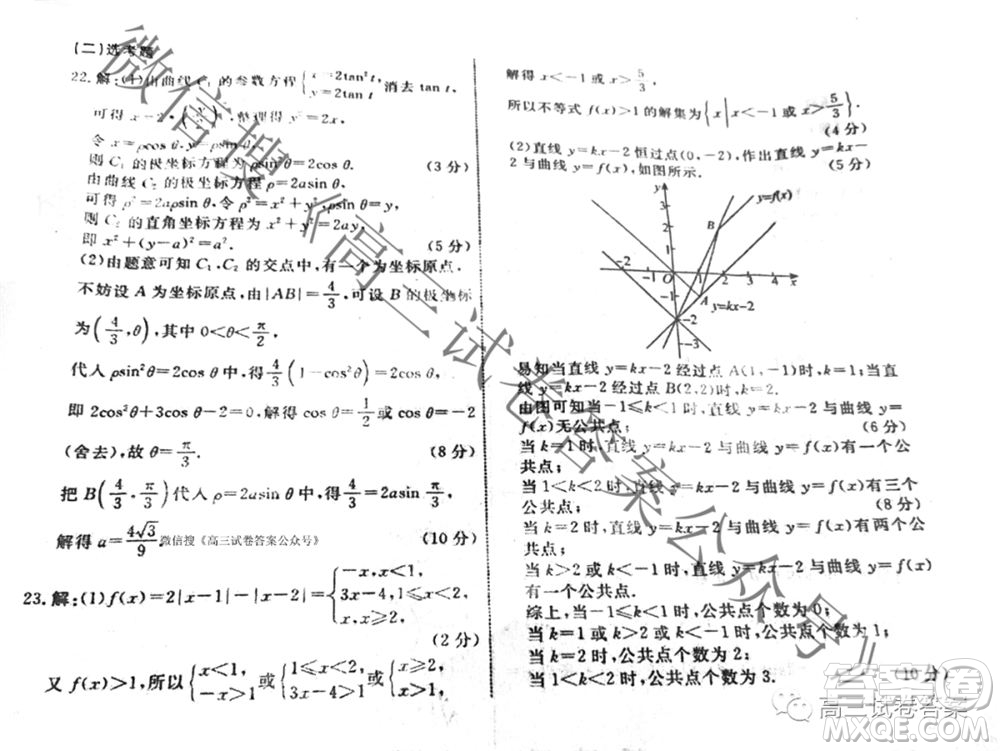 (二)选考题
22.解:(1)由曲线 C₁ 的参数方程{x=2tan²t, y=2tan t 消去 tan t,
可得 x=2·(y/2)²,整理得
令 x=ρcos θ,
则 C₁ 的极坐标方程为 ρsin²θ=2cos θ. (3 分)
由曲线 C₂ 的极坐标方程 ρ=2asin θ,
可得 ρ²=2aρsin θ,令 ρ²=x²+y²,ρsin θ=y,
则 C₂ 的直角坐标方程为 x²+y²=2ay,
即 x²+(y-a)²=a². (5 分)
(2)由题意可知 C₁,C₂ 的交点中,有一个为坐标原点.
不妨设 A 为坐标原点,由|AB|=4/3,可设 B 的极坐标
为(4/3,θ),其中 0<θ<π/2.
代入 ρsin²θ=2cos θ 中,得 4/3(1-cos²θ)=2cos θ,
即 2cos²θ+3cos θ-2=0,解得 cos θ=1/2 或 cos θ=-2
(舍去),故 θ=π/3. (8 分)
把 B(4/3,π/3)代入 ρ=2asin θ 中,得 4/3=2asin π/3,
解得 a=4√3/9. 微信搜《高三试卷答案公众号》 (10 分)
23.解:(1)f(x)=2|x-1|-|x-2|={-x,x<1, 3x-4,1≤x≤2, x,x>2.
(2 分)
又 f(x)>1,所以{x<1, -x>1 或{1≤x≤2, 3x-4>1 或{x>2, x>1,
解得 x<-1 或 x>5/3.
所以不等式 f(x)>1 的解集为{x|x<-1 或 x>5/3}.
(4 分)
(2)直线 y=kx-2 恒过点(0,-2),作出直线 y=kx-
2 与曲线 y=f(x),如图所示. (5 分)
y
y=f(x)
3
2
1
B
-2 -1 O 1 2 3 4 x
-1
A
y=kx-2
-2
-3
易知当直线 y=kx-2 经过点 A(1,-1)时,k=1;当直
线 y=kx-2 经过点 B(2,2)时,k=2.
由图可知当-1≤k<1 时,直线 y=kx-2 与曲线 y=
f(x)无公共点; (6 分)
当 k=1 时,直线 y=kx-2 与曲线 y=f(x)有一个公
共点;
当 1<k<2 时,直线 y=kx-2 与曲线 y=f(x)有三个
公共点; (8 分)
当 k=2 时,直线 y=kx-2 与曲线 y=f(x)有两个公
共点;
当 k<-1 或 k>2 时,直线 y=kx-2 与曲线 y=f(x)
有一个公共点.
综上,当-1≤k<1 时,公共点个数为 0;
当 k=1 或 k<-1 或 k>2 时,公共点个数为 1;
当 k=2 时,公共点个数为 2;
当 1<k<2 时,公共点个数为 3. (10 分)
微信搜《高三试卷答案公众号》
高三试卷答案
答案圈